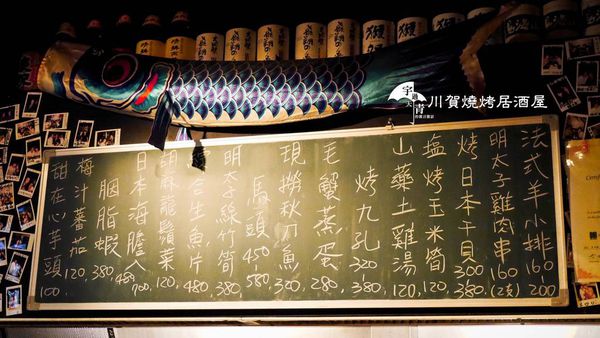 川賀燒烤居酒屋
法式羊小排 160 200
明太子雞肉串 160 (2支)
烤日本干貝 300 380
塩烤玉米筍 120
山藥土雞湯 120
烤九孔 320 380
毛蟹蒸蛋 280
現撈秋刀魚 320
馬頭 450~580
明太子線竹筍 380
合生魚片 480
胡麻龍鬚菜 120
日本海膽 700
胭脂蝦 380 480
梅汁番茄 120
甜在心芋頭 100